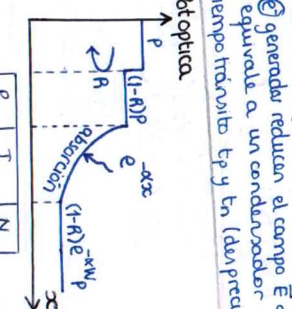 ⓔ generador reducen el campo E
equivale a un condensador
tiempo tránsito tp y tn (desprec
Pot optica
P
R
(1-R)P
absorción
e^-αx
(1-R)e^-αWp
x
P I N